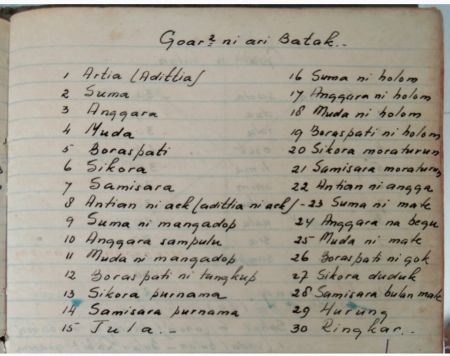 Goar² ni ari Batak..
1 Artia (Adittia)
2 Suma
3 Anggara
4 Muda
5 Boraspati
6 Sikora
7 Samisara
8 Antian ni aek (adittia ni aek)
9 Suma ni mangadop
10 Anggara sampulu
11 Muda ni mangadop
12 Boraspati ni tangkup
13 Sikora purnama
14 Samisara purnama
15 Tula..
16 Suma ni holom
17 Anggara ni holom
18 Muda ni holom
19 Boraspati ni holom
20 Sikora moraturun
21 Samisara moraturun
22 Antian ni angga
23 Suma ni mate
24 Anggara na begu
25 Muda ni mate
26 Boraspati ni gok
27 Sikora duduk
28 Samisara bulan mate
29 Hurung
30 Ringkar..